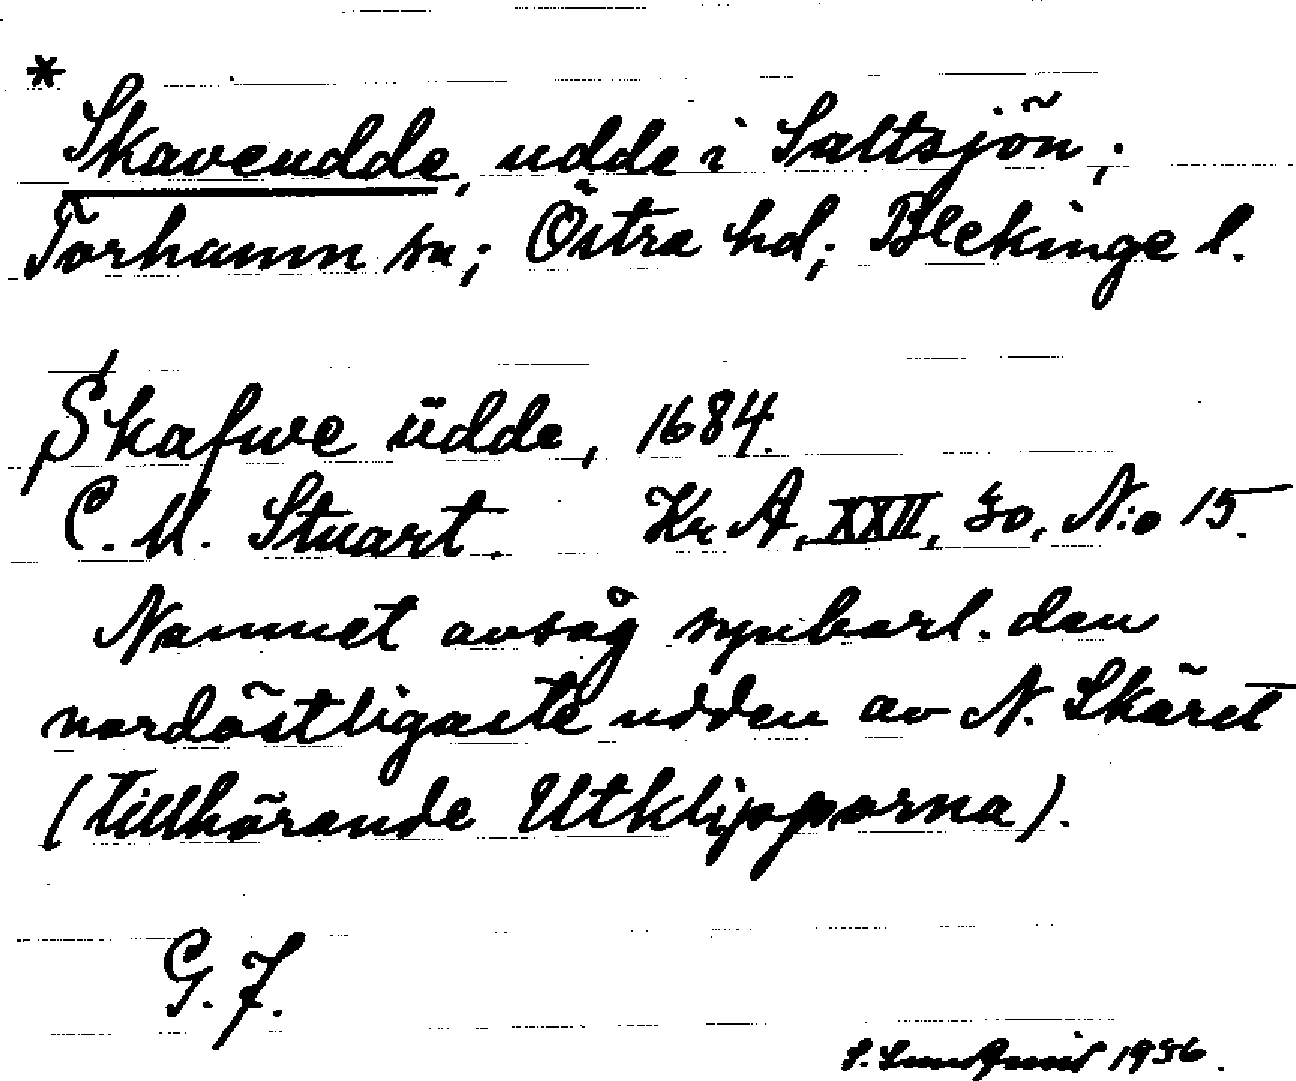 * Skaveudde, udde i Saltsjön;
Torhamn sn; Östra hd; Blekinge l.
Skafwe üdde, 1684.
C. M. Stuart. Kr A, XXII, 30, N:o 15.
Namnet avsåg synbarl. den
nordöstligaste udden av N. Skäret
(tillhörande Utklipporna).
G. F.
S. Lundquist 1936.